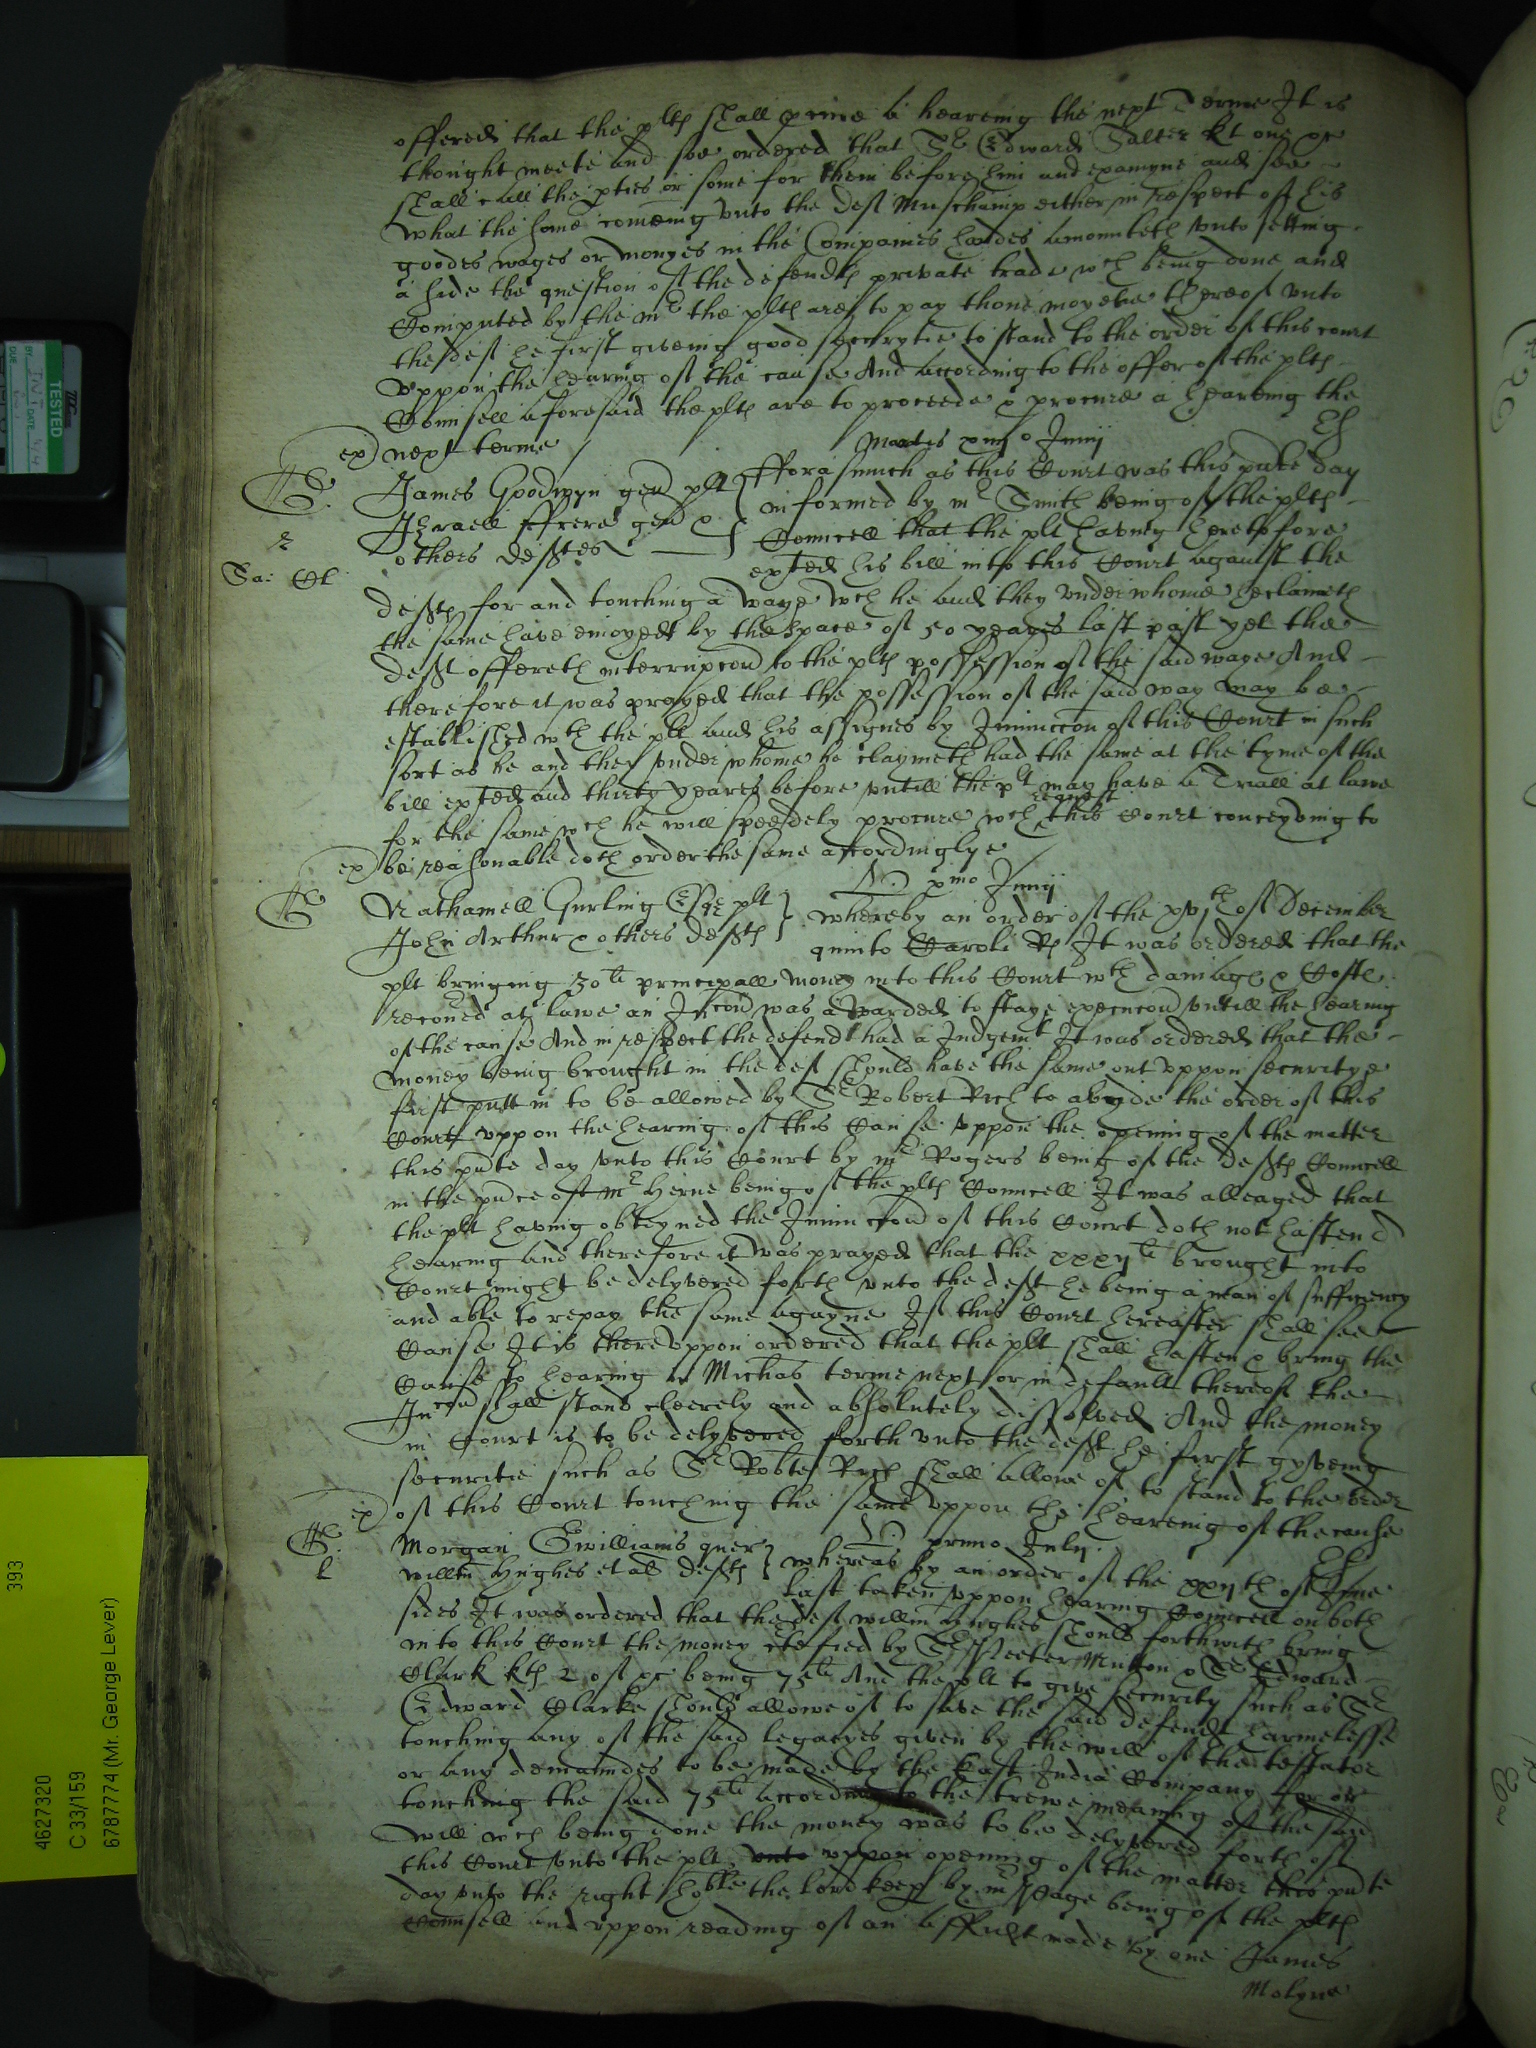 offered that the plts shall procure a heareing the next Terme It is
thought meete and soe ordered that Sr Edward Salter kt one &c
shall call the pties or some for them before him and examyne and see
what the some comeing vnto the deft Muschamp either in respect of his
goodes wages or monyes in the Companies handes amounteth vnto setting
a side the question of the defendts private trade wch being done and
Computed by the mr the plts are to pay thone moyetie thereof vnto
the deft he first giveing good securytie to stand to the order of this court
vppon the hearing of the cause And according to the offer of the plts
Counsell aforesaid the plts are to proceede & procure a heareing the
ex next terme
Martis Junij
James Goodwyn gen plt
Israell ffrere gen &
others deftes
fforasmuch as this Court was this pnte day
informed by mr Smith being of the plts
Councell that the plt having heretofore
exted his bill into this Court against the
defts for and touching a waye wch he and they vnder whome he claimeth
the same have enioyed by the space of 50 yeares last past yet the
deft offereth interrupcon to the plts possession of the said waye And
therefore it was prayed that the possession of the said way may be
established wth the plt and his assignes by Iniunccon of this Court in such
sort as he and they vnder whome he claymeth had the same at the tyme of the
bill exted and thirty yeares before vntill the plt may have a Triall at lawe
for the same wch he will speedely procure wch request this Court conceyving to
ex be reasonable doth order the same accordinglye
V. pmo Junij
Nathaniell Gurling Esqr plt
John Arthur & others defts
whereby an order of the xvth of December
quinto Caroli Rs It was ordered that the
plt bringing 30li principall money into this Court wth damages & Costs
recoued at lawe an Incon was awarded to staye execucon vntill the hearing
of the cause And in respect the defendt had a Judgemt It was ordered that the
money being brought in the deft should have the same out vppon securitye
first putt in to be allowed by Sr Robert Rich to abyde the order of this
Court vppon the hearing of this Cause vppon the opening of the matter
this pnte day vnto this Court by mr Rogers being of the defts Councell
in the pnce of mr Herne being of the plts Councell It was alleaged that
the plt having obteyned the Iniunccon of this Court doth not hasten a
hearing and therefore it was prayed that the xxxijli brought into
Court might be delyvered forth vnto the deft he being a man of sufficiency
and able to repay the same agayne If this Court hereafter shall see
Cause It is therevppon ordered that the plt shall hasten & bring the
Cause to hearing in Michas terme next or in default thereof the
Incon shall stand cleerely and absolutely dissolved And the money
in Court is to be delyvered forth vnto the deft he first gyveing
securitie such as Sr Robte Rich shall allowe of to stand to the order
ex of this Court touching the same vppon the heareing of the cause
V. primo July
Morgan Ewilliams quer
Willm Hughes et als defts
whereas by an order of the xxijth of June
last taken vppon hearing Councell on both
sides It was ordered that the deft willm Hughes should forthwith bring
into this Court the money ctefied by Sr Peeter Mutton & Sr Edward
Clark kts 2 of &c being 75li And the plt to give security such as Sr
Edward Clarke should allowe of to save the said defendt harmelesse
touching any of the said legacyes given by the will of the testator
or any demaundes to be made by the East India Company for or
touching the said 75li according to the trewe meaning of the said
will wch being done the money was to be delyvered forth of
this Court vnto the plt vppon opening of the matter this pnte
day vnto the right hoble the lord keep by mr Page being of the plts
Counsell and vppon reading of an affidt made by one James
Molyne
TESTED
393
4627320
C 33/159
6787774 (Mr. George Lever)